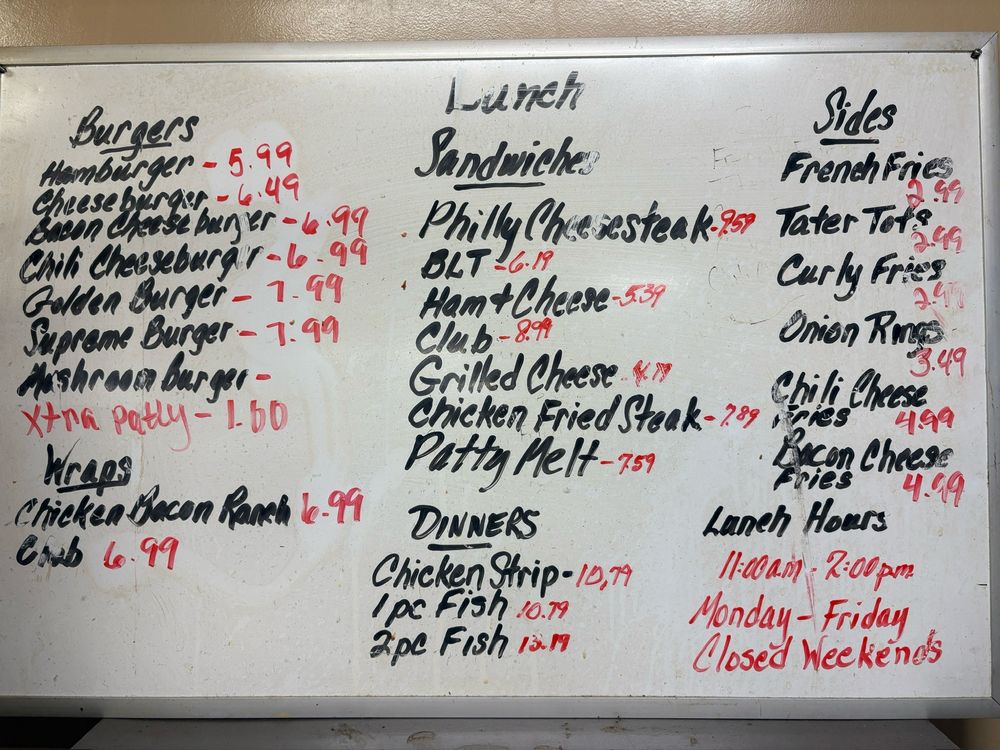 Lunch
Burgers
Hamburger - 5.99
Cheeseburger - 6.49
Bacon Cheeseburger - 6.99
Chili Cheeseburger - 6.99
Golden Burger - 7.99
Supreme Burger - 7.99
Mushroom Burger -
Xtra patty - 1.60
Wraps
Chicken Bacon Ranch 6.99
Club 6.99
Sandwiches
Philly Cheesesteak - 9.59
BLT - 6.19
Ham & Cheese - 5.39
Club - 8.99
Grilled Cheese -
Chicken Fried Steak - 7.89
Patty Melt - 7.59
DINNERS
Chicken Strip - 10,79
1pc Fish 10.79
2pc Fish 13.19
Sides
French Fries
2.99
Tater Tots
2.99
Curly Fries
2.99
Onion Rings
3.49
Chili Cheese
Fries 4.99
Bacon Cheese
Fries 4.99
Lunch Hours
11:00am - 2:00pm
Monday - Friday
Closed Weekends